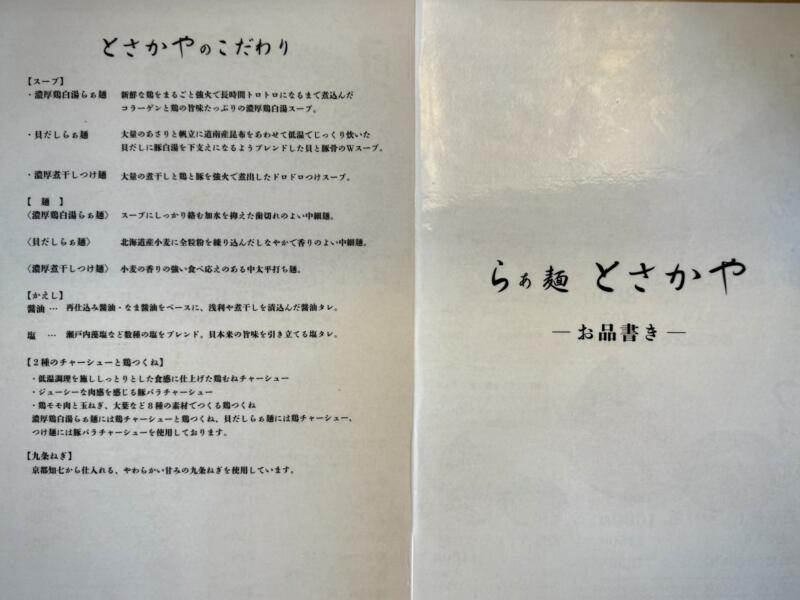 とさかやのこだわり
【スープ】
・濃厚鶏白湯らぁ麺 新鮮な鶏をまるごと強火で長時間トロトロになるまで煮込んだ
コラーゲンと鶏の旨味たっぷりの濃厚鶏白湯スープ。
・貝だしらぁ麺 大量のあさりと帆立に道南産昆布をあわせて低温でじっくり炊いた
貝だしに豚白湯を下支えになるようブレンドした貝と豚骨のWスープ。
・濃厚煮干しつけ麺 大量の煮干しと鶏と豚を強火で煮出したドロドロつけスープ。
【 麺 】
〈濃厚鶏白湯らぁ麺〉 スープにしっかり絡む加水を抑えた歯切れのよい中細麺。
〈貝だしらぁ麺〉 北海道産小麦に全粒粉を練り込んだしなやかで香りのよい中細麺。
〈濃厚煮干しつけ麺〉 小麦の香りの強い食べ応えのある中太平打ち麺。
【かえし】
醤油 … 再仕込み醤油・なま醤油をベースに、浅利や煮干しを漬込んだ醤油タレ。
塩 … 瀬戸内藻塩など数種の塩をブレンド。貝本来の旨味を引き立てる塩タレ。
【２種のチャーシューと鶏つくね】
・低温調理を施ししっとりとした食感に仕上げた鶏むねチャーシュー
・ジューシーな肉感を感じる豚バラチャーシュー
・鶏モモ肉と玉ねぎ、大葉など８種の素材でつくる鶏つくね
濃厚鶏白湯らぁ麺には鶏チャーシューと鶏つくね、貝だしらぁ麺には鶏チャーシュー、
つけ麺には豚バラチャーシューを使用しております。
【九条ねぎ】
京都知七から仕入れる、やわらかい甘みの九条ねぎを使用しています。
らぁ麺 とさかや
―お品書き―